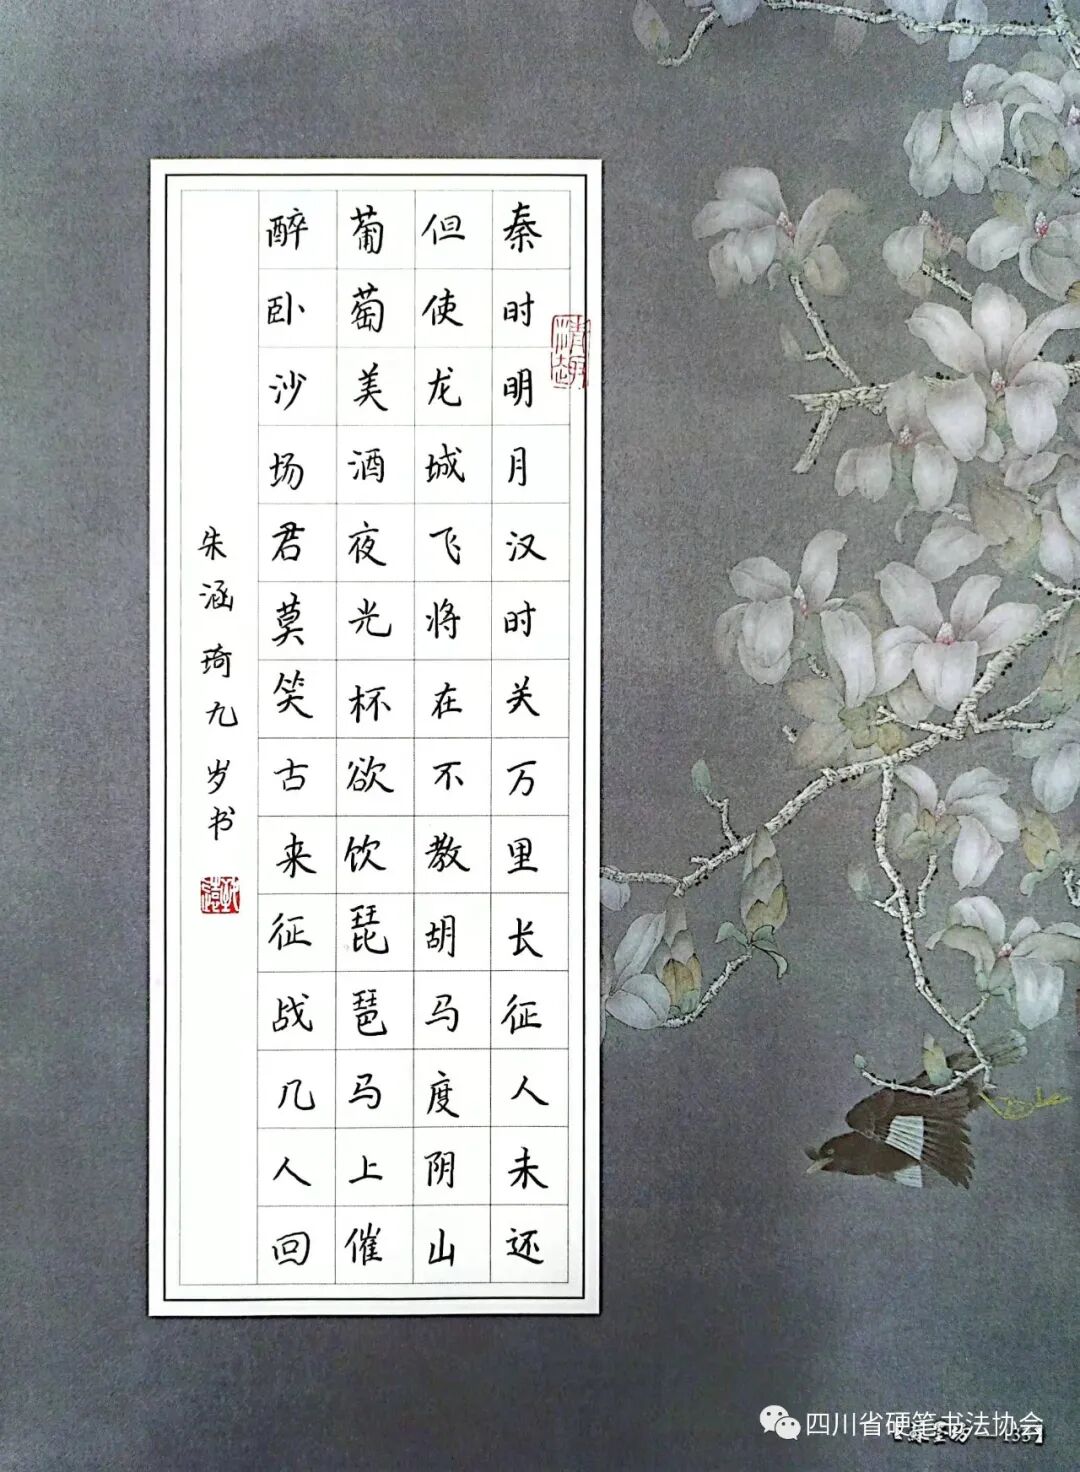 秦时明月汉时关万里长征人未还
但使龙城飞将在不教胡马度阴山
葡萄美酒夜光杯欲饮琵琶马上催
醉卧沙场君莫笑古来征战几人回
朱涵琦九岁书
情趣
四川省硬笔书法协会